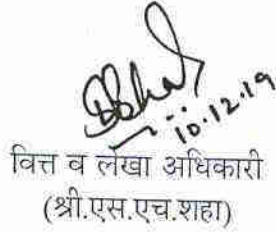 10.12.19
वित्त व लेखा अधिकारी
(श्री.एस.एच.शहा)